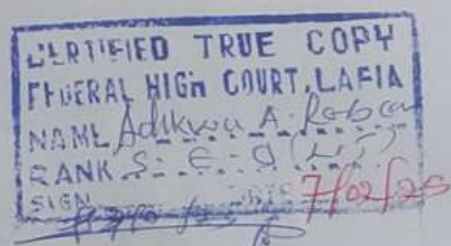 CERTIFIED TRUE COPY
FEDERAL HIGH COURT, LAFIA
NAME Adikwu A.
RANK S. E. O
SIGN DATE 7/02/25